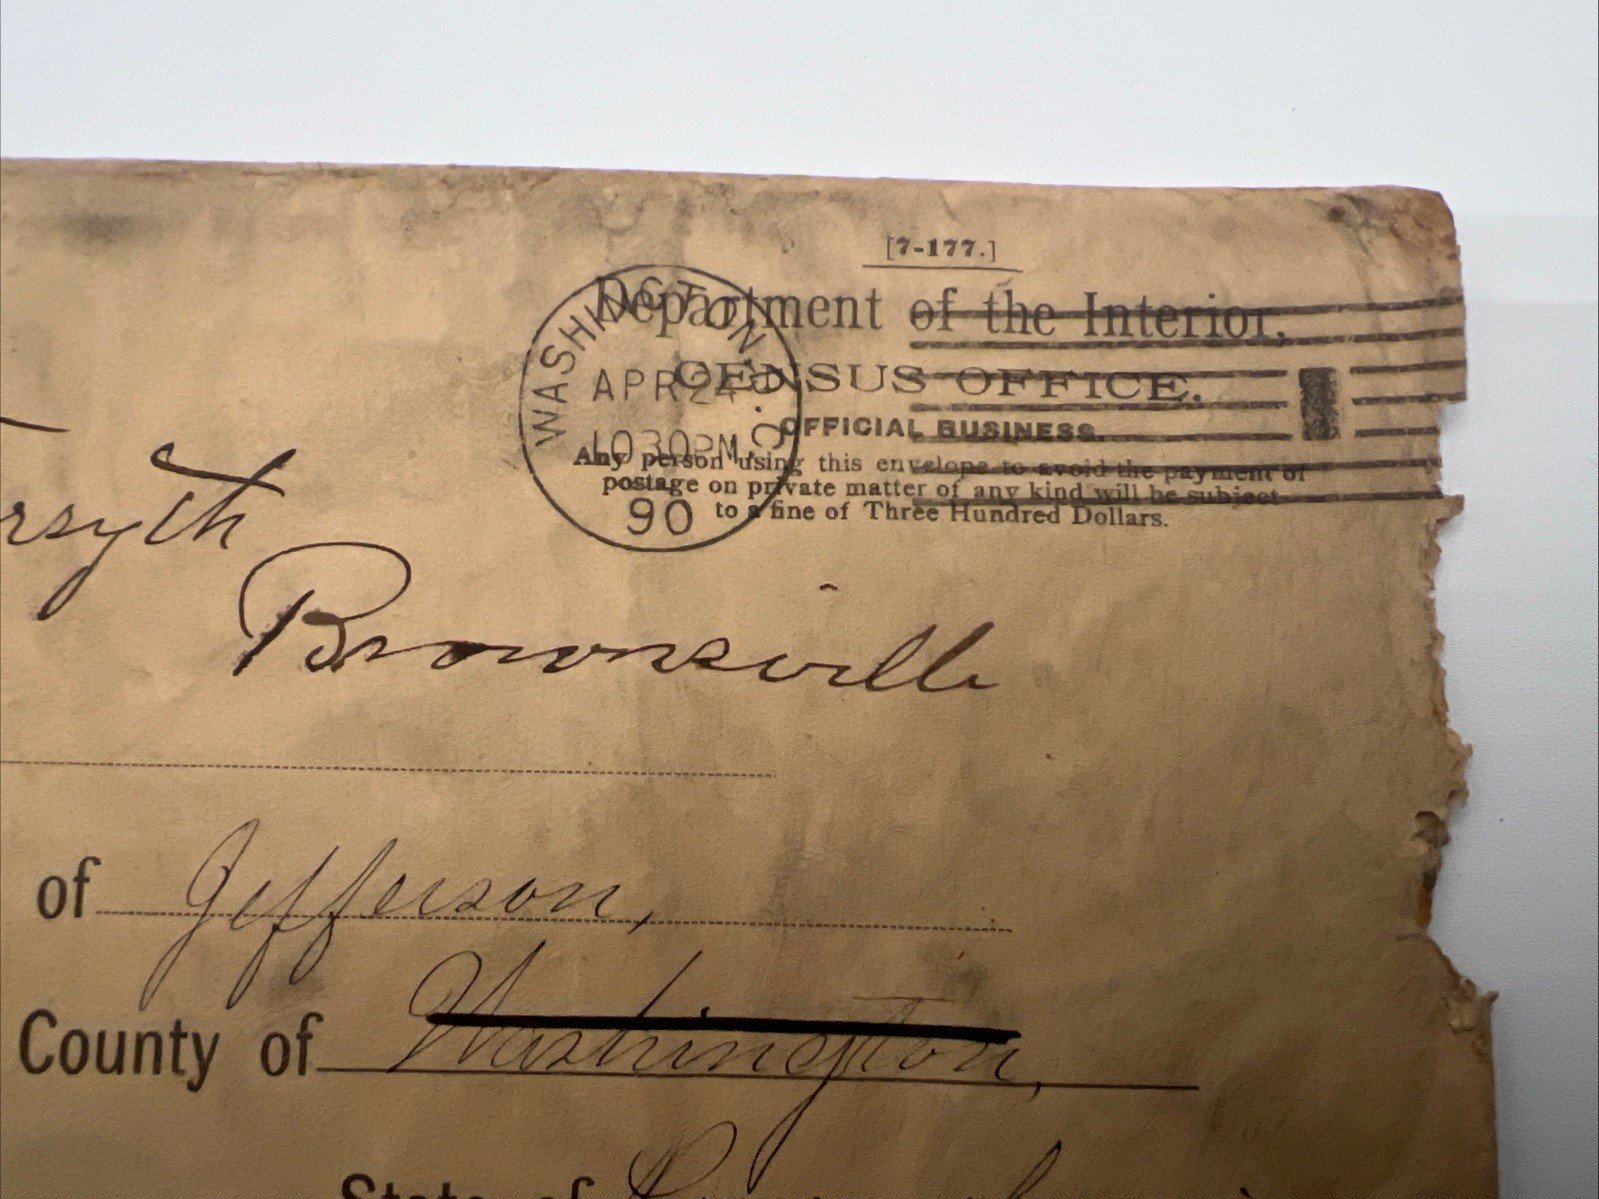 [7-177.]
Department of the Interior,
CENSUS OFFICE.
OFFICIAL BUSINESS.
Any person using this envelope to avoid the payment of
postage on private matter of any kind will be subject
to a fine of Three Hundred Dollars.
WASHINGTON, D.C.
APR 24
1030PM
90
rsyth
Brownsville
of Jefferson,
County of Washington,
State of